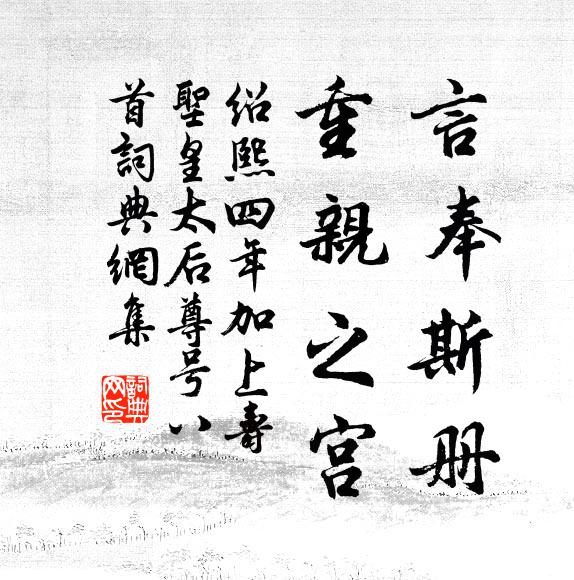 言奉斯册
重親之宮
绍熙四年加上壽
聖皇太后尊号八
首詞典網集
詞典网印